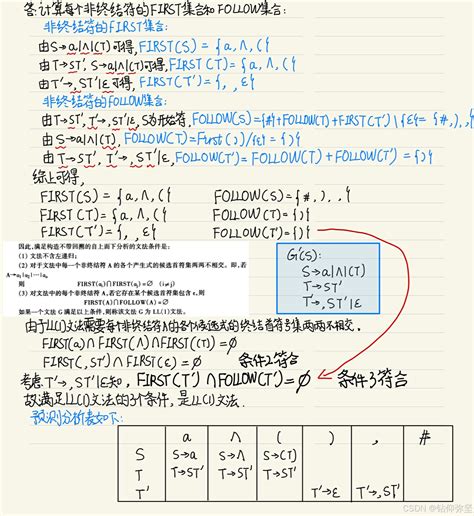 答:计算每个非终结符的FIRST集合和FOLLOW集合:
非终结符的FIRST集合:
由S→a|∧|(T)可得,FIRST(S) = {a,∧,(}
由T→ST', S→a|∧|(T)可得,FIRST(T) = {a,∧,(}
由T'→,ST'|ε可得, FIRST(T') = {, ,ε}
非终结符的FOLLOW集合:
由T→ST', T'→,ST'|ε, S为开始符, FOLLOW(S)={#}+FOLLOW(T)+FIRST(T')\{ε}= {#,),,}
由S→a|∧|(T), FOLLOW(T)=First())/{ε} = {)}
由T→ST', T'→,ST'|ε, FOLLOW(T')=FOLLOW(T)+FOLLOW(T') = {)}
综上可得,
FIRST(S) = {a,∧,(} FOLLOW(S)={#,),,}
FIRST(T) = {a,∧,(} FOLLOW(T)={)}
FIRST(T') = {, ,ε} FOLLOW(T')={)}
因此,满足构造不带回溯的自上而下分析的文法条件是:
(1) 文法不含左递归;
(2) 对于文法中每一个非终结符 A 的各个产生式的候选首符集两两不相交。即,若
A→α₁|α₂|…|αₙ
则 FIRST(αᵢ)∩FIRST(αⱼ)=∅ (i≠j)
(3) 对文法中的每个非终结符 A,若它存在某个候选首符集包含 ε,则
FIRST(A)∩FOLLOW(A)=∅
如果一个文法 G 满足以上条件,则称该文法 G 为 LL(1)文法。
G'(S):
S→a|∧|(T)
T→ST'
T'→,ST'|ε
由于LL(1)文法需要每个非终结符A的各个表达式的终结首符号集两两不相交.
FIRST(a)∩FIRST(∧)∩FIRST((T))=∅
FIRST(,ST')∩FIRST(ε)=∅ 条件2符合
考虑T'→,ST'|ε知, FIRST(T')∩FOLLOW(T')=∅ 条件3符合
故满足LL(1)文法的3个条件,是LL(1)文法.
预测分析表如下:
a ∧ ( ) , #
S S→a S→∧ S→(T)
T T→ST' T→ST' T→ST'
T' T'→ε T'→,ST'
CSDN @钻仰弥坚